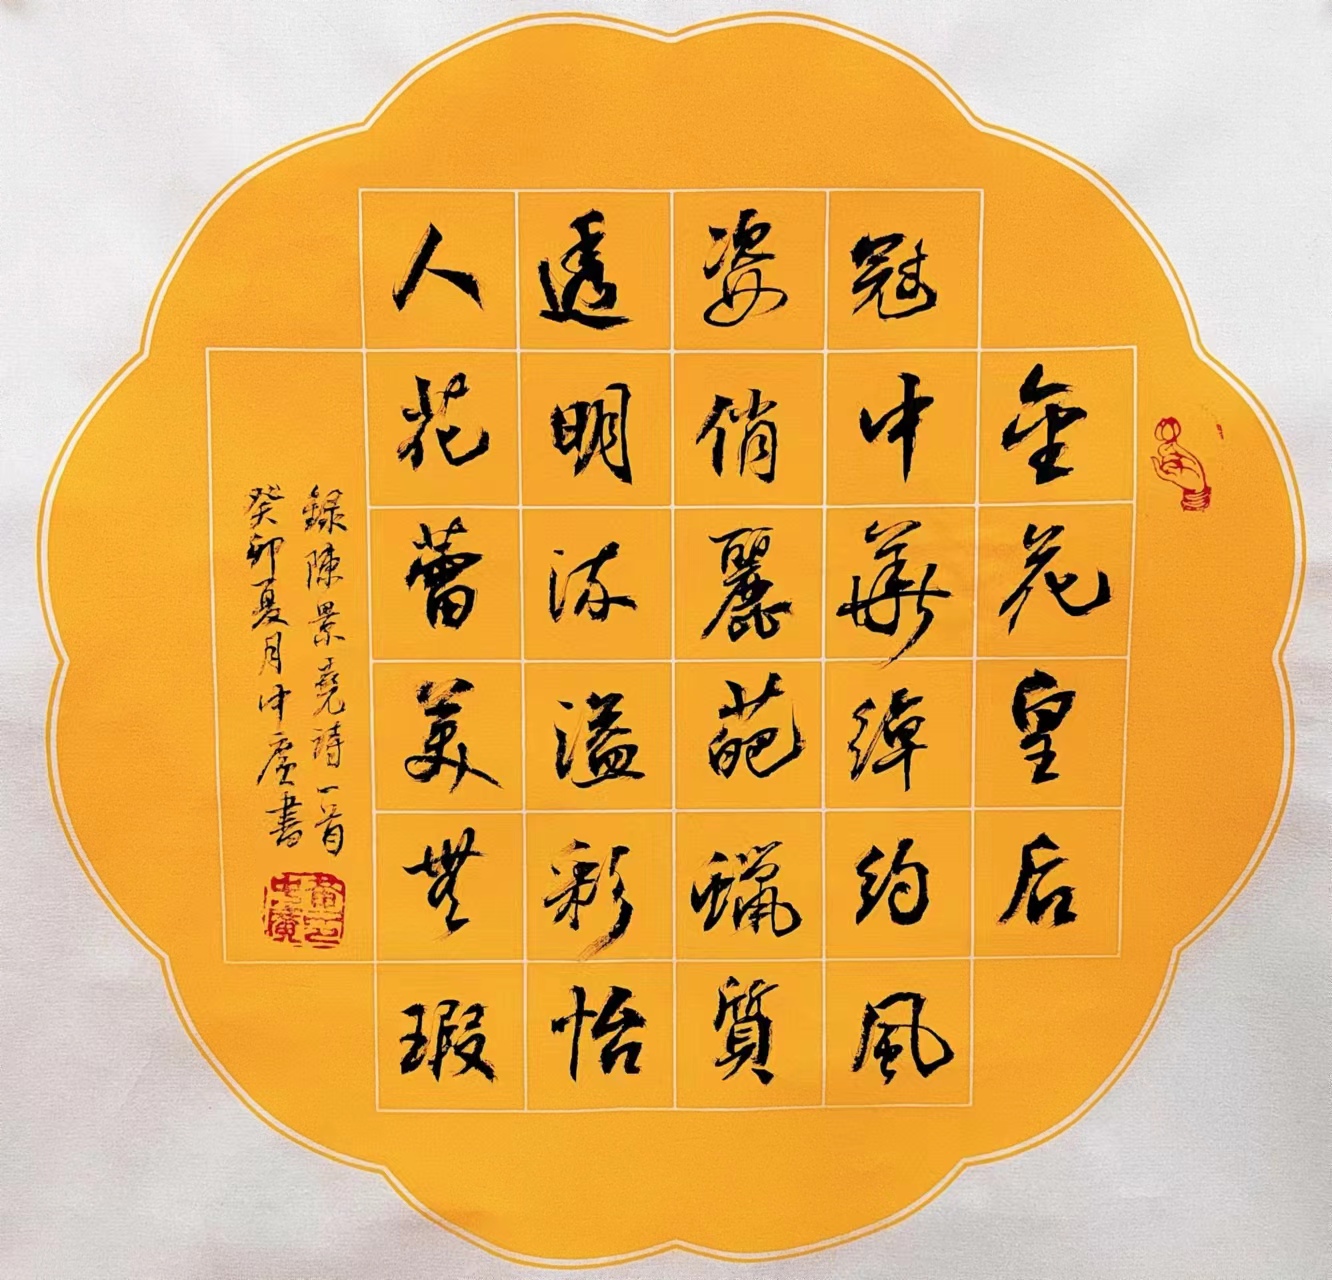 金花皇后
冠中華綽約風
姿俏麗葩蠟質
透明流溢彩怡
人花蕾美無瑕
錄陳景堯詩一首
癸卯夏月中書